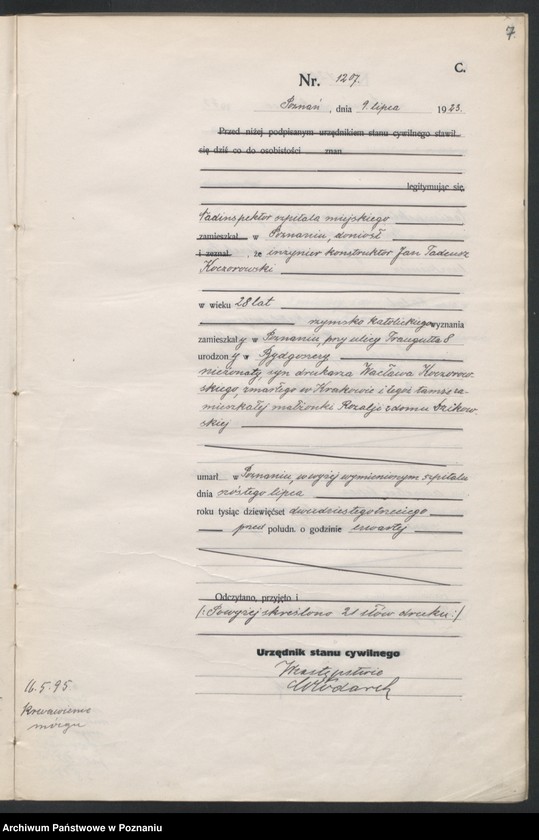 7.
C.
Nr. 1207.
Poznań, dnia 9. lipca 1923.
Przed niżej podpisanym urzędnikiem stanu cywilnego stawił
się dziś co do osobistości znan
legitymując się,
Nadinspektor szpitala miejskiego
zamieszkał w Poznaniu, doniósł
i zeznał, że inżynier konstruktor Jan Tadeusz
Koczorowski
w wieku 28 lat
rzymsko katolickiego wyznania
zamieszkały w Poznaniu, przy ulicy Traugutta 8
urodzony w Bydgoszczy
nieżonaty, syn drukarza Wacława Koczorow-
skiego, zmarłego w Krakowie i tegoż tamże za-
mieszkałej małżonki Rozalji z domu
skiej
umarł w Poznaniu, w wyżej wymienionym szpitalu
dnia szóstego lipca
roku tysiąc dziewięćset dwudziestego trzeciego
przed połudn. o godzinie czwartej
Odczytano, przyjęto i
/: Powyżej skreślono 21 słów druku :/
Urzędnik stanu cywilnego
W zastępstwie
Włodarek
16.5.95
Krwawienie
mózgu
Archiwum Państwowe w Poznaniu